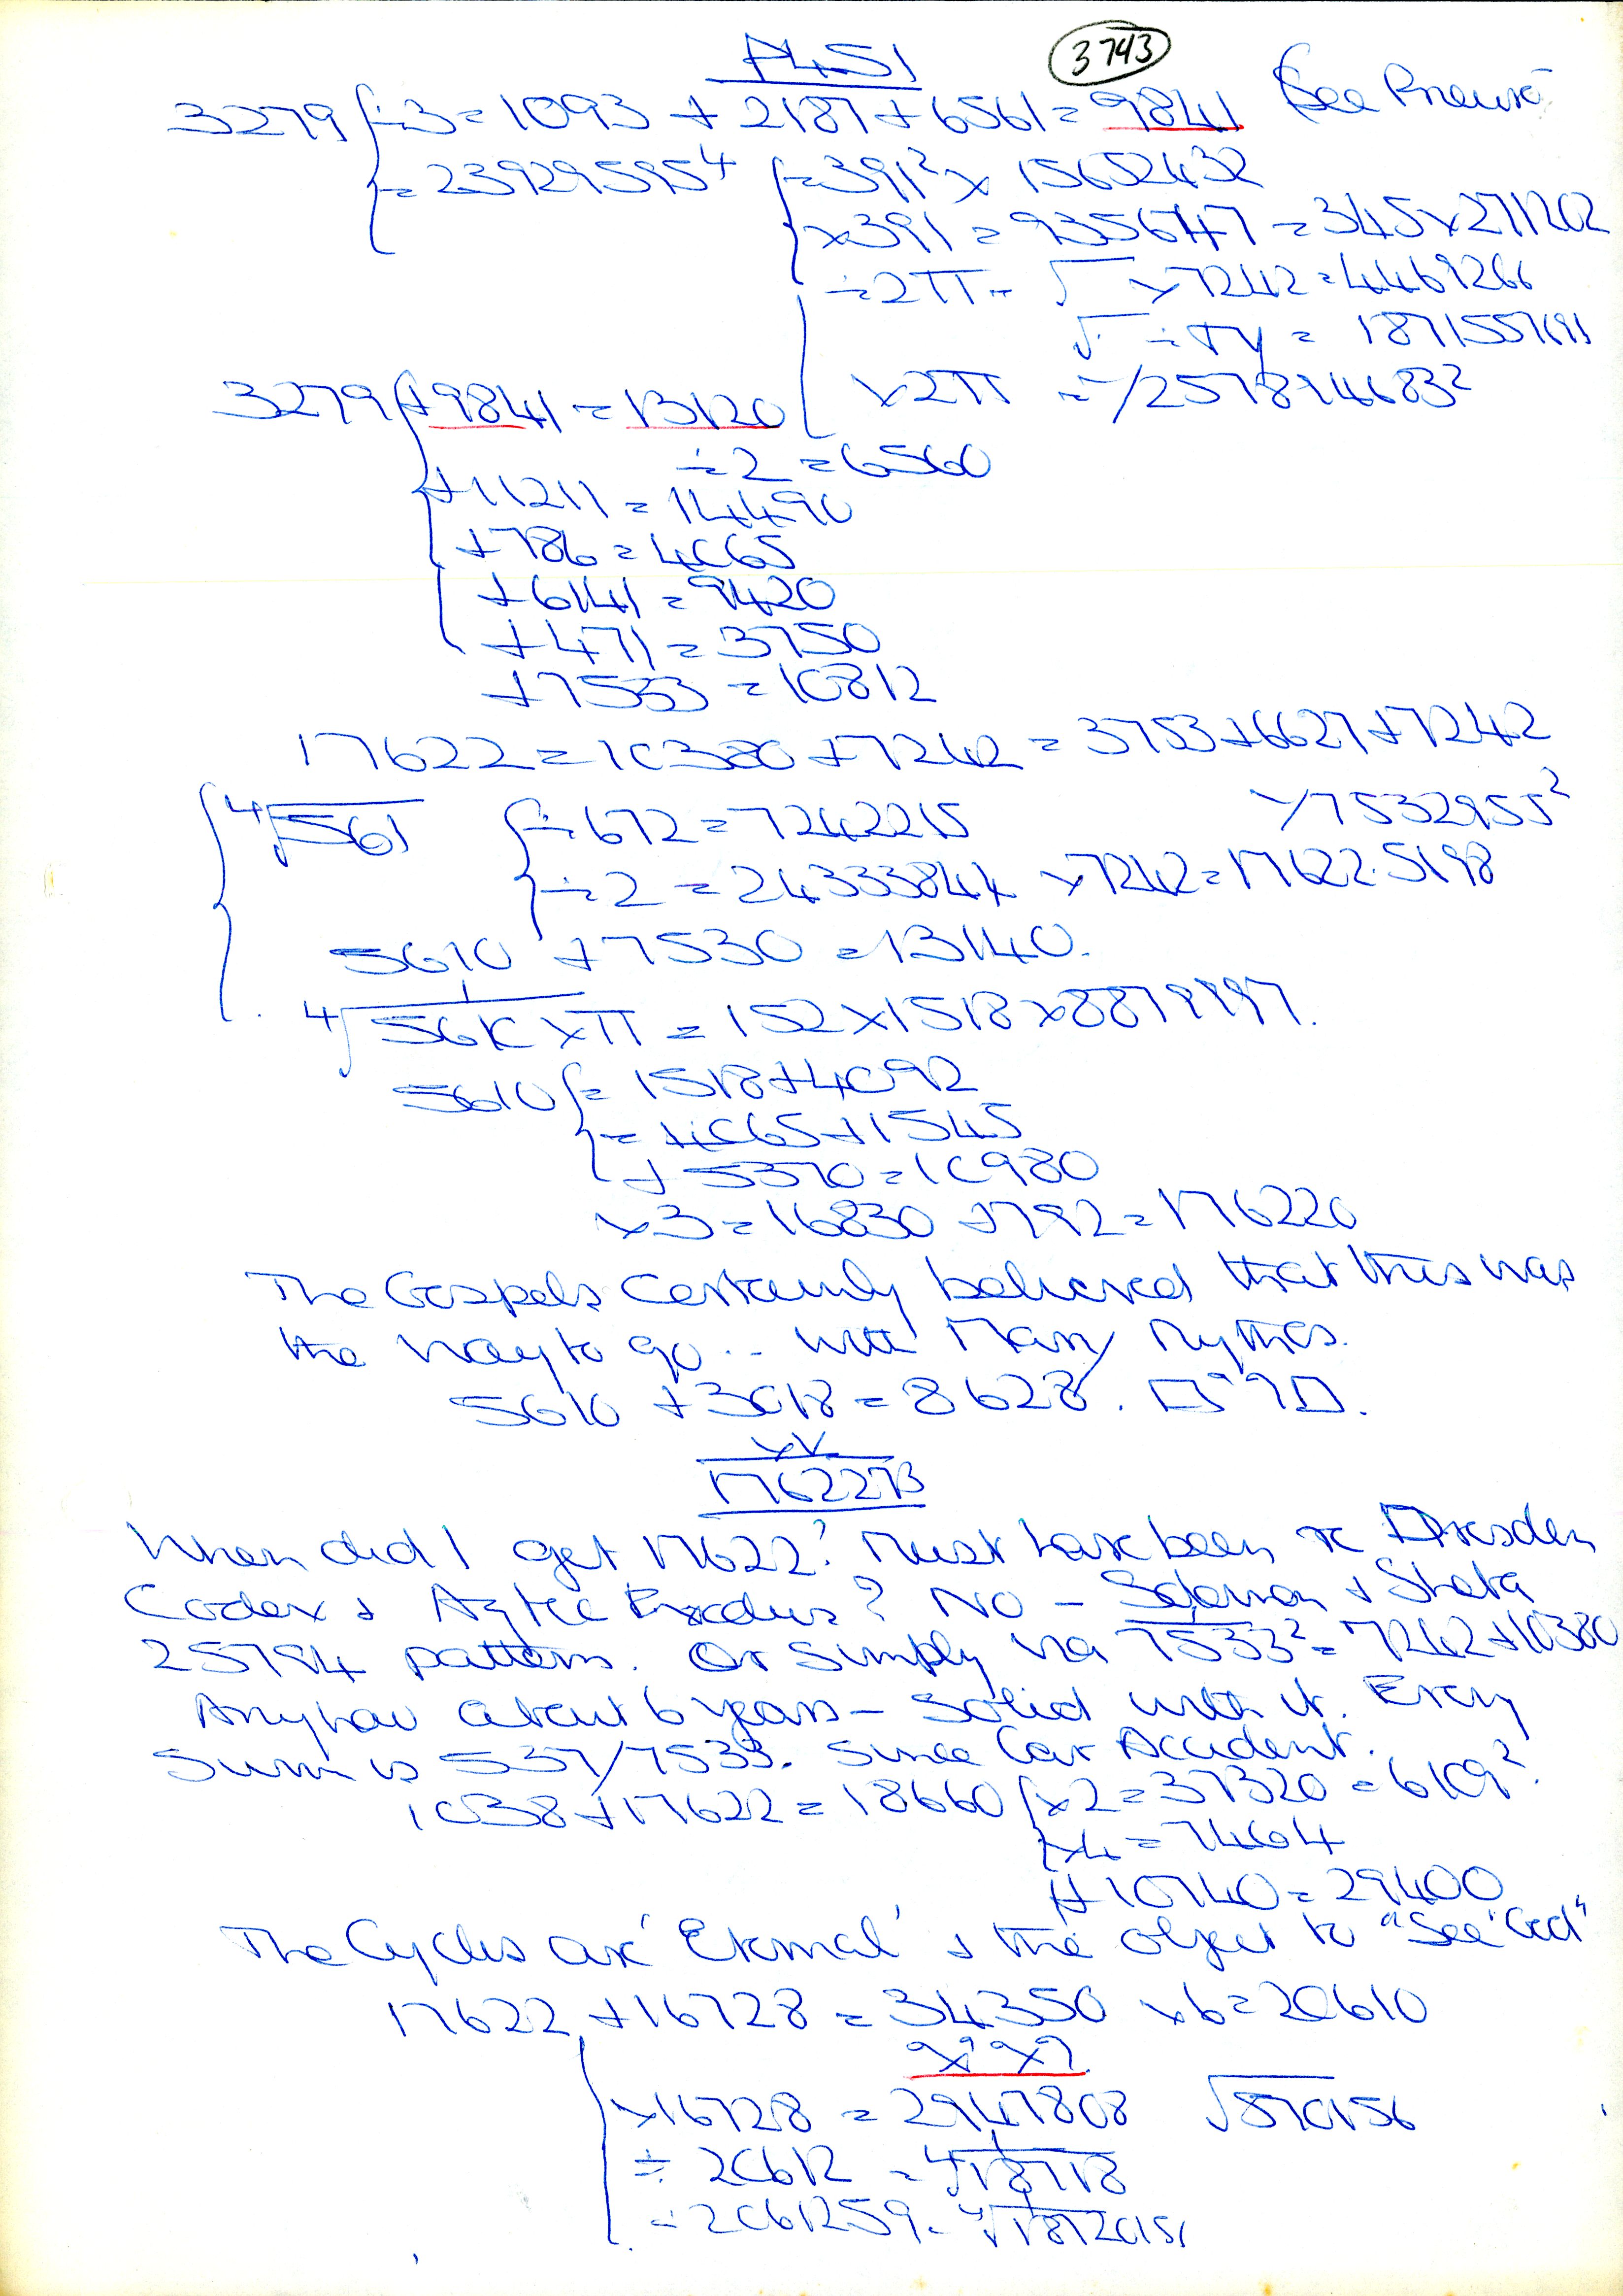 3743
3279 ÷3 = 1093 + 2187 + 6561 = 9841 (See Pneuro
= 23929595⁴ = 391² × 15652432
×391 = 9356747 = 345×271202
÷2π = √ ×7242 = 4469266
√ ÷ = 1871557691
×2π = 2578946832
3279 +9841 = 13120
÷2 = 6560
+11211 = 14490
+786 = 4065
+6141 = 9420
+471 = 3750
+7533 = 10812
17622 = 10380 + 7242 = 3753+6627+7242
⁴√561 ÷672 = 7242215 7532955²
÷2 = 24333844 ×7242 = 17622.5198
5610 +7530 = 13140.
⁴√5610 ×π = 152×1518×8879997.
5610 = 1518+4092
= 4065+1545
+ 5370 = 10980
×3 = 16830 +792 = 176220
The Gospels certainly believed that this was
the way to go .. with Many Mythes.
5610 +3018 = 8628.
17622
When did I get 17622? Must have been re Dresden
Codex & Aztec Exodus? NO – Solomon & Sheba
25794 pattern. Or simply via 7533² = 7242+10380
Anyhow about 6 years – solid with it. Every
Sum is 537/7533. Since Car Accident.
1038+17622 = 18660 ×2 = 37320 = 6109².
×4 = 7464
+10740 = 29400
The Cycles are 'Eternal' & the object to "See God"
17622 +16728 = 34350 ×6 = 20610
×16728 = 2947808 √870156
÷ 20612 = ⁴√18718
= 2061259 = ⁴√